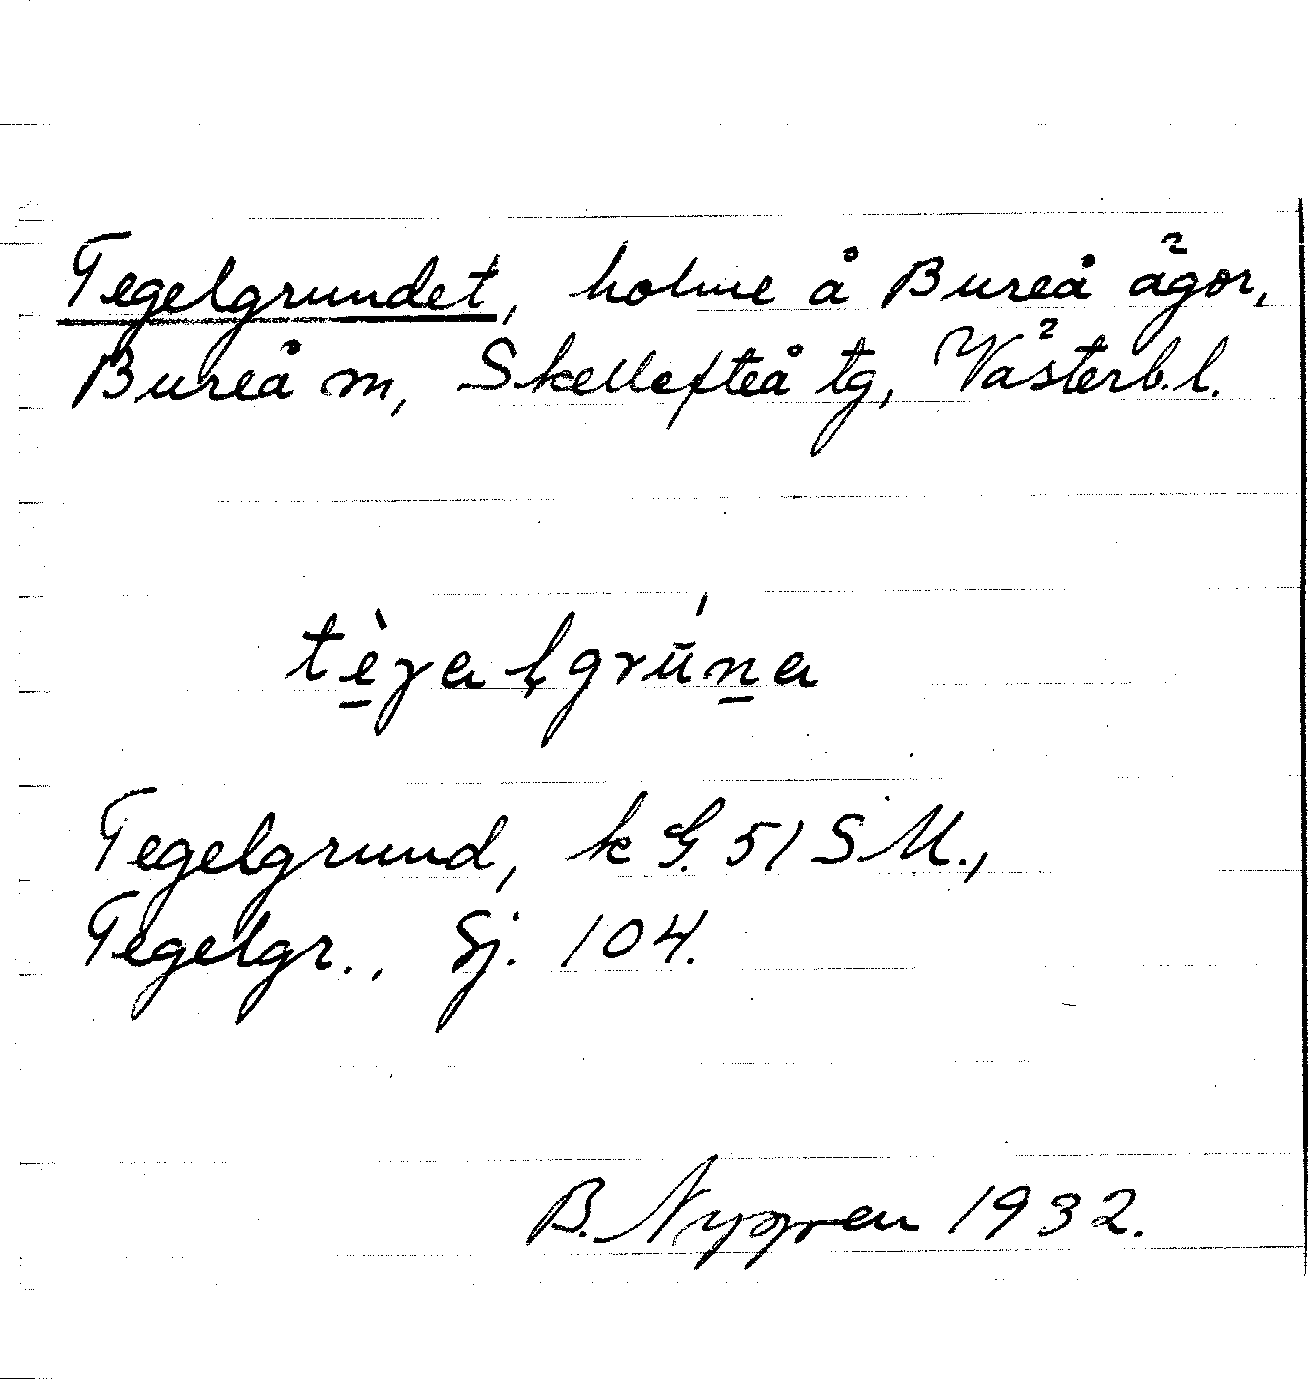 Tegelgrundet, holme å Bureå ägor,
Bureå m, Skellefteå tg, Västerb. l.
Tegelgrund, k G. 51 S M.,
Tegelgr., Sj. 104.
B. Nygren 1932.